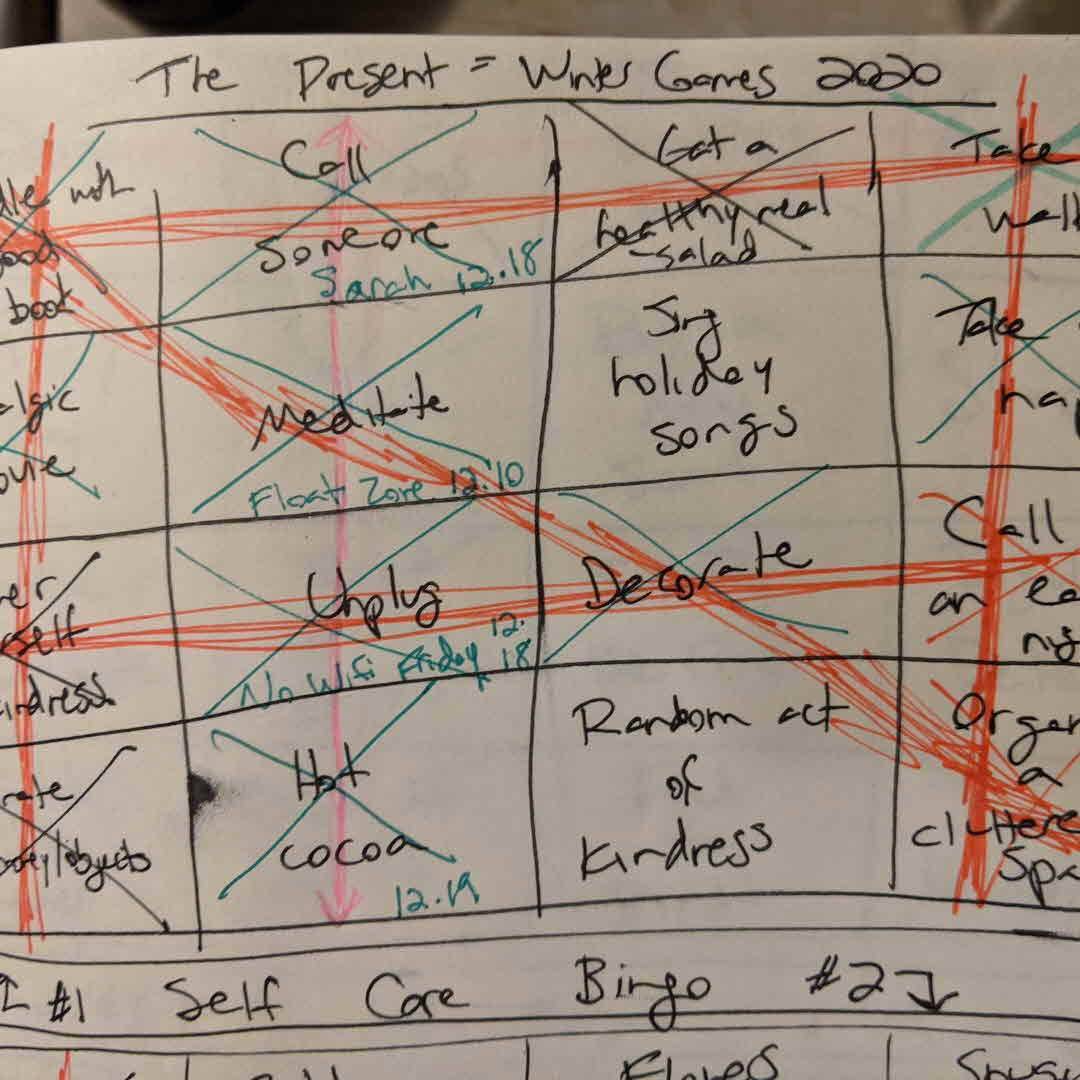 The Present = Winter Games 2020
dle with
good
book
Call
Someone
Sarah 12.18
Eat a
healthy meal
-salad
Take
walk
algic
ovie
Meditate
Float Zone 12.10
Sing
holiday
songs
Take
nap
self
kindness
Unplug
No Wifi Friday 12.18
Decorate
Call
an
rate
objects
Hot
cocoa
12.19
Random act
of
kindness
Organ
a
cluttere
Spa
#1 Self Care Bingo #2